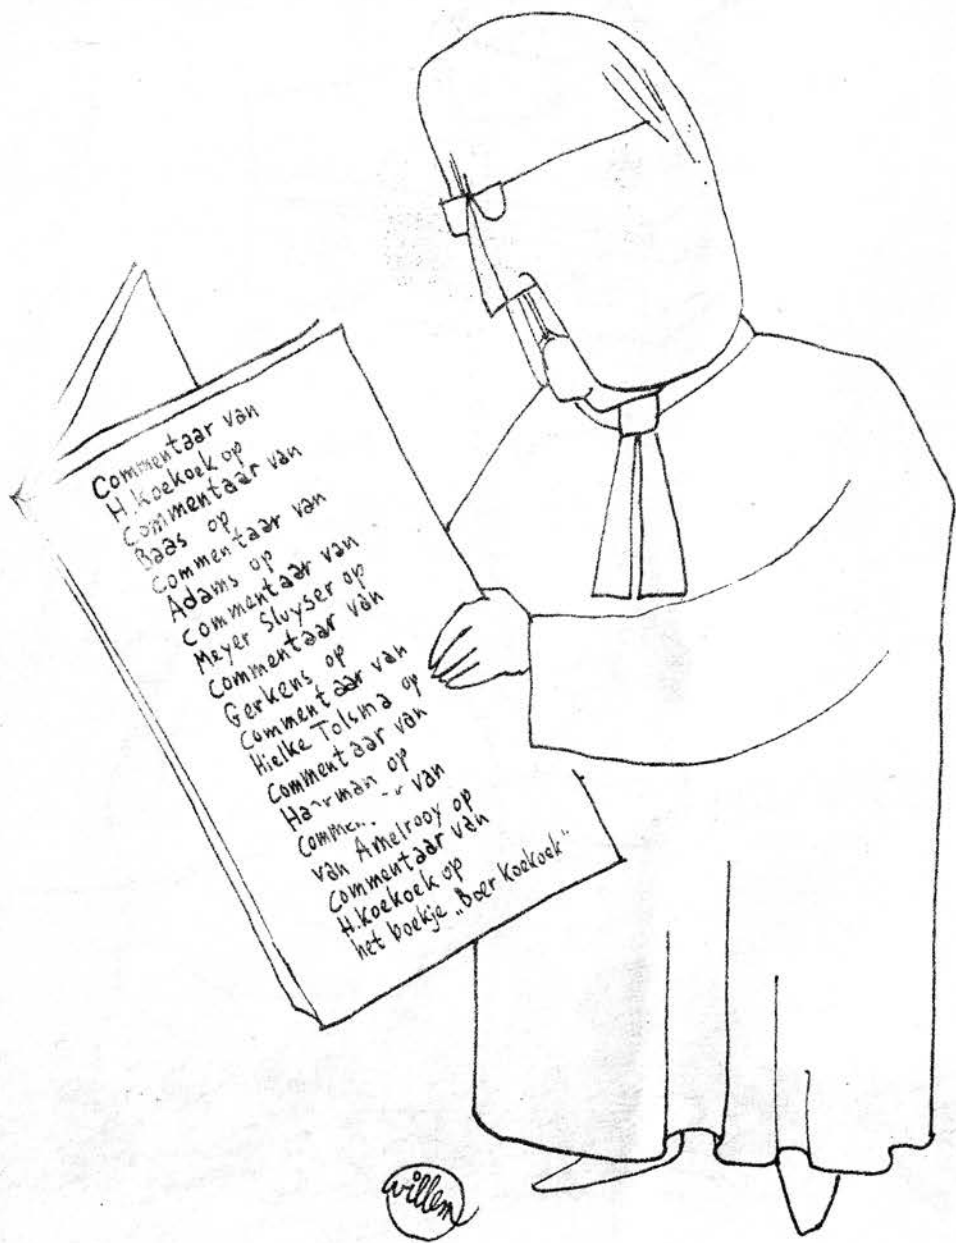 Commentaar van
H. Koekoek op
Commentaar van
Baas op
Commentaar van
Adams op
Commentaar van
Meyer Sluyser op
Commentaar van
Gerkens op
Commentaar van
Hielke Tolsma op
Commentaar van
op
van
van Amelrooy op
Commentaar van
H. Koekoek op
het boekje „Boer Koekoek"
willem